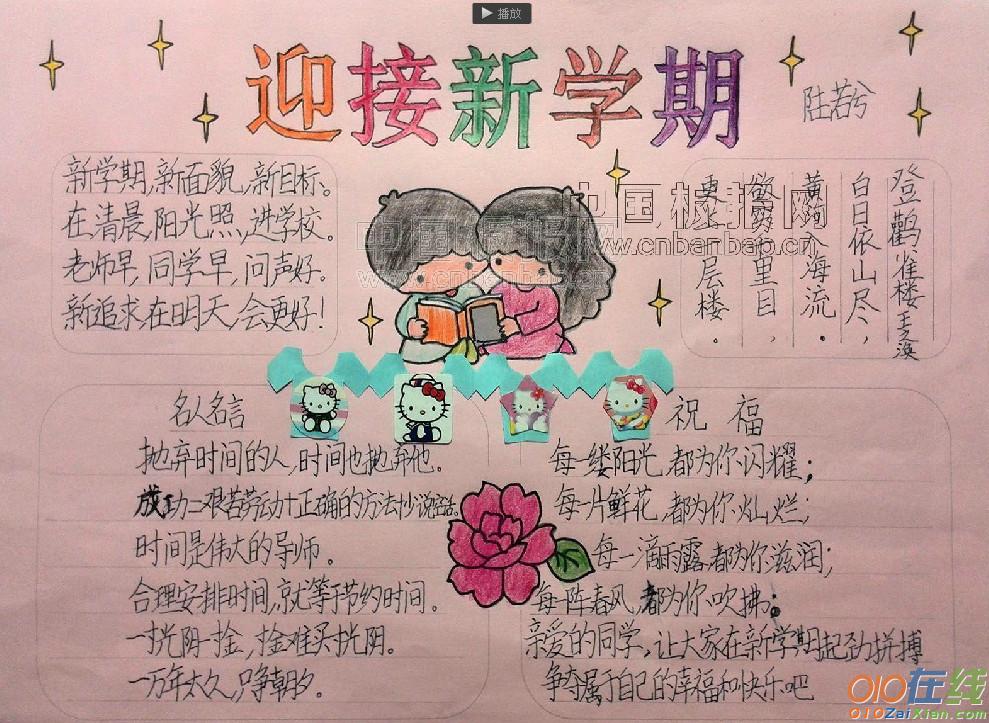 播放
迎接新学期
陆若兮
新学期,新面貌,新目标。
在清晨,阳光照,进学校。
老师早,同学早,问声好。
新追求在明天,会更好!
登鹳雀楼 王之涣
白日依山尽,
黄河入海流.
欲穷千里目,
更上一层楼.
中国板报网
www.cnbanbao.cn
中国板报网
www.cnbanbao.cn
名人名言
抛弃时间的人,时间也抛弃他。
成功=艰苦劳动+正确的方法+少说空话。
时间是伟大的导师。
合理安排时间,就等于节约时间。
一寸光阴一寸金,寸金难买寸光阴。
一万年太久,只争朝夕。
祝福
每一缕阳光,都为你闪耀;
每一片鲜花,都为你灿烂;
每一滴雨露,都为你滋润;
每一阵春风,都为你吹拂;
亲爱的同学,让大家在新学期起劲拼搏
争夺属于自己的幸福和快乐吧
010在线
010ZaiXian.com